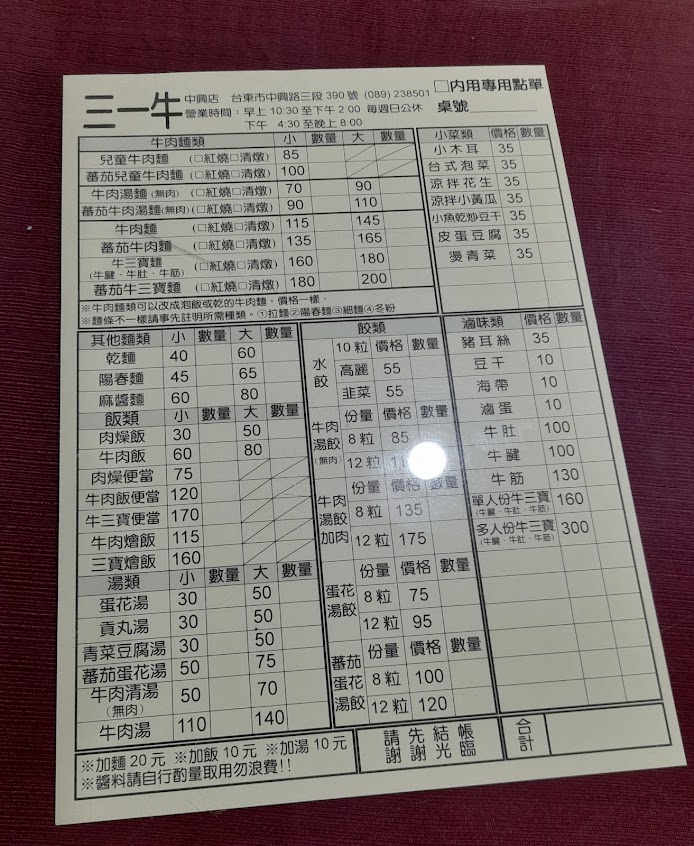 三一牛 中興店 台東市中興路三段390號 (089) 238501 □內用專用點單
營業時間：早上 10:30 至下午 2:00 每週日公休 桌號
下午 4:30 至晚上 8:00
牛肉麵類 小 數量 大 數量
兒童牛肉麵 (□紅燒□清燉) 85
蕃茄兒童牛肉麵 (□紅燒□清燉) 100
牛肉湯麵(無肉) (□紅燒□清燉) 70 90
蕃茄牛肉湯麵(無肉) (□紅燒□清燉) 90 110
牛肉麵 (□紅燒□清燉) 115 145
蕃茄牛肉麵 (□紅燒□清燉) 135 165
牛三寶麵 (□紅燒□清燉) 160 180
(牛腱、牛肚、牛筋)
蕃茄牛三寶麵 (□紅燒□清燉) 180 200
※牛肉麵類可以改成泡飯或乾的牛肉麵，價格一樣。
※麵條不一樣請事先註明所需種類。①拉麵②陽春麵③細麵④冬粉
小菜類 價格 數量
小木耳 35
台式泡菜 35
涼拌花生 35
涼拌小黃瓜 35
小魚乾炒豆干 35
皮蛋豆腐 35
燙青菜 35
其他麵類 小 數量 大 數量
乾麵 40 60
陽春麵 45 65
麻醬麵 60 80
飯類 小 數量 大 數量
肉燥飯 30 50
牛肉飯 60 80
肉燥便當 75
牛肉飯便當 120
牛三寶便當 170
牛肉燴飯 115
三寶燴飯 160
湯類 小 數量 大 數量
蛋花湯 30 50
貢丸湯 30 50
青菜豆腐湯 30 50
蕃茄蛋花湯 50 75
牛肉清湯 50 70
(無肉)
牛肉湯 110 140
餃類
水餃 10粒 價格 數量
高麗 55
韭菜 55
牛肉湯餃(無肉) 份量 價格 數量
8粒 85
12粒
牛肉湯餃加肉 份量 價格 數量
8粒 135
12粒 175
蛋花湯餃 份量 價格 數量
8粒 75
12粒 95
蕃茄蛋花湯餃 份量 價格 數量
8粒 100
12粒 120
滷味類 價格 數量
豬耳絲 35
豆干 10
海帶 10
滷蛋 10
牛肚 100
牛腱 100
牛筋 130
單人份牛三寶 160
(牛腱、牛肚、牛筋)
多人份牛三寶 300
(牛腱、牛肚、牛筋)
※加麵20元 ※加飯10元 ※加湯10元
※醬料請自行酌量取用勿浪費!!
請先結帳
謝謝光臨
合計